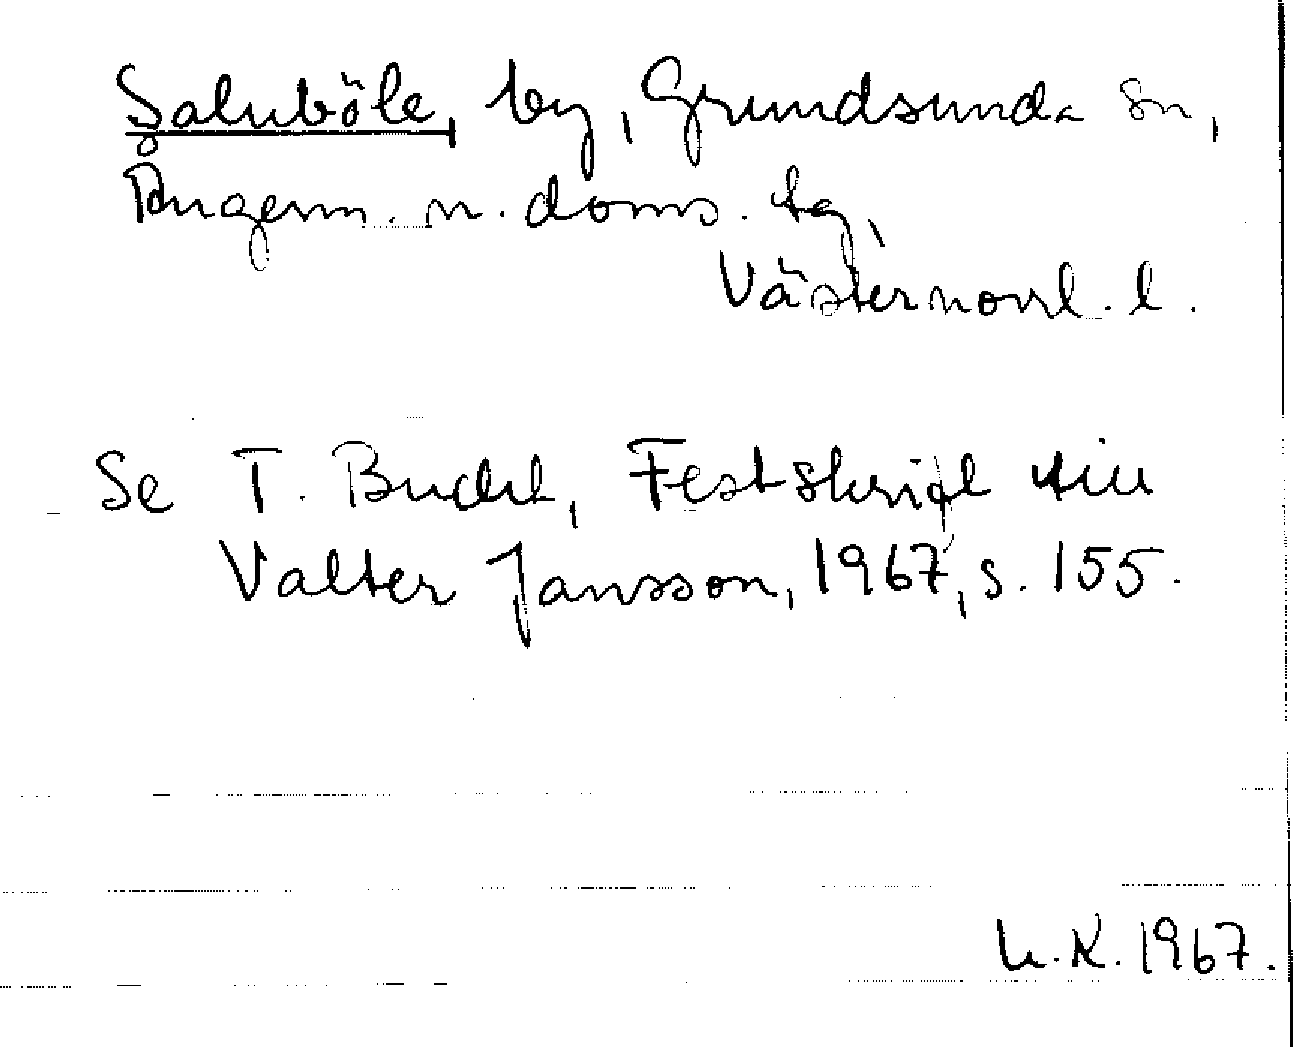 Saluböle, by, Grundsunda sn,
Ångerm. n. doms. tg,
Västernorrl. l.
Se T. Bucht, Festskrift till
Valter Jansson, 1967, s. 155.
L.K. 1967.